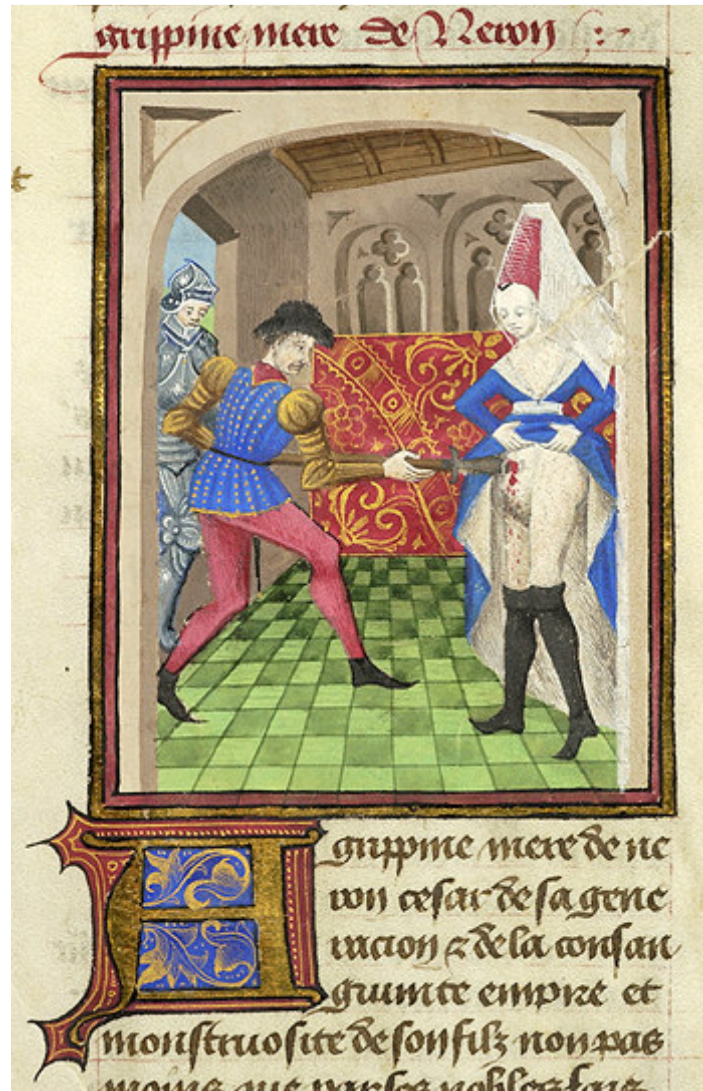 grippine mere de Neron
Agrippine mere de ne
ron cesar de sa gene
racion & de la consan
guinite empire et
monstruosite de son filz non pas
moins que par ses nobles